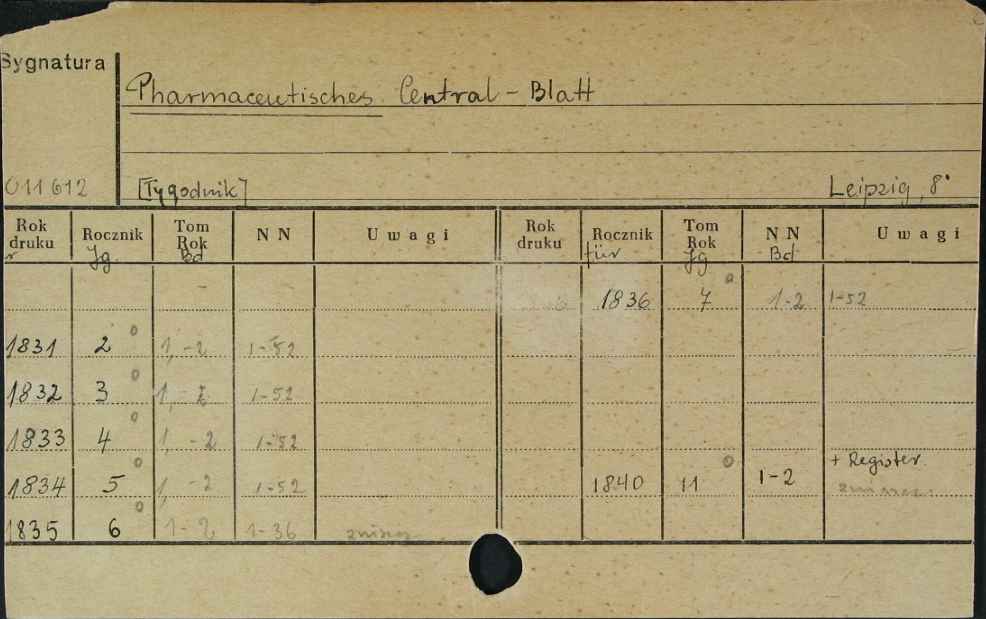 Sygnatura
Pharmaceutisches Central-Blatt
011612
[Tygodnik]
Leipzig, 8°
Rok druku Rocznik Tom Rok NN Uwagi Rok druku Rocznik Tom Rok NN Uwagi
Jg. Bd für Jg Bd
1836 7 1-2 1-52
1831 2 1,-2 1-52
1832 3 1,-2 1-52
1833 4 1,-2 1-52
+ Register
1834 5 1,-2 1-52 1840 11 1-2
1835 6 1-2 1-36